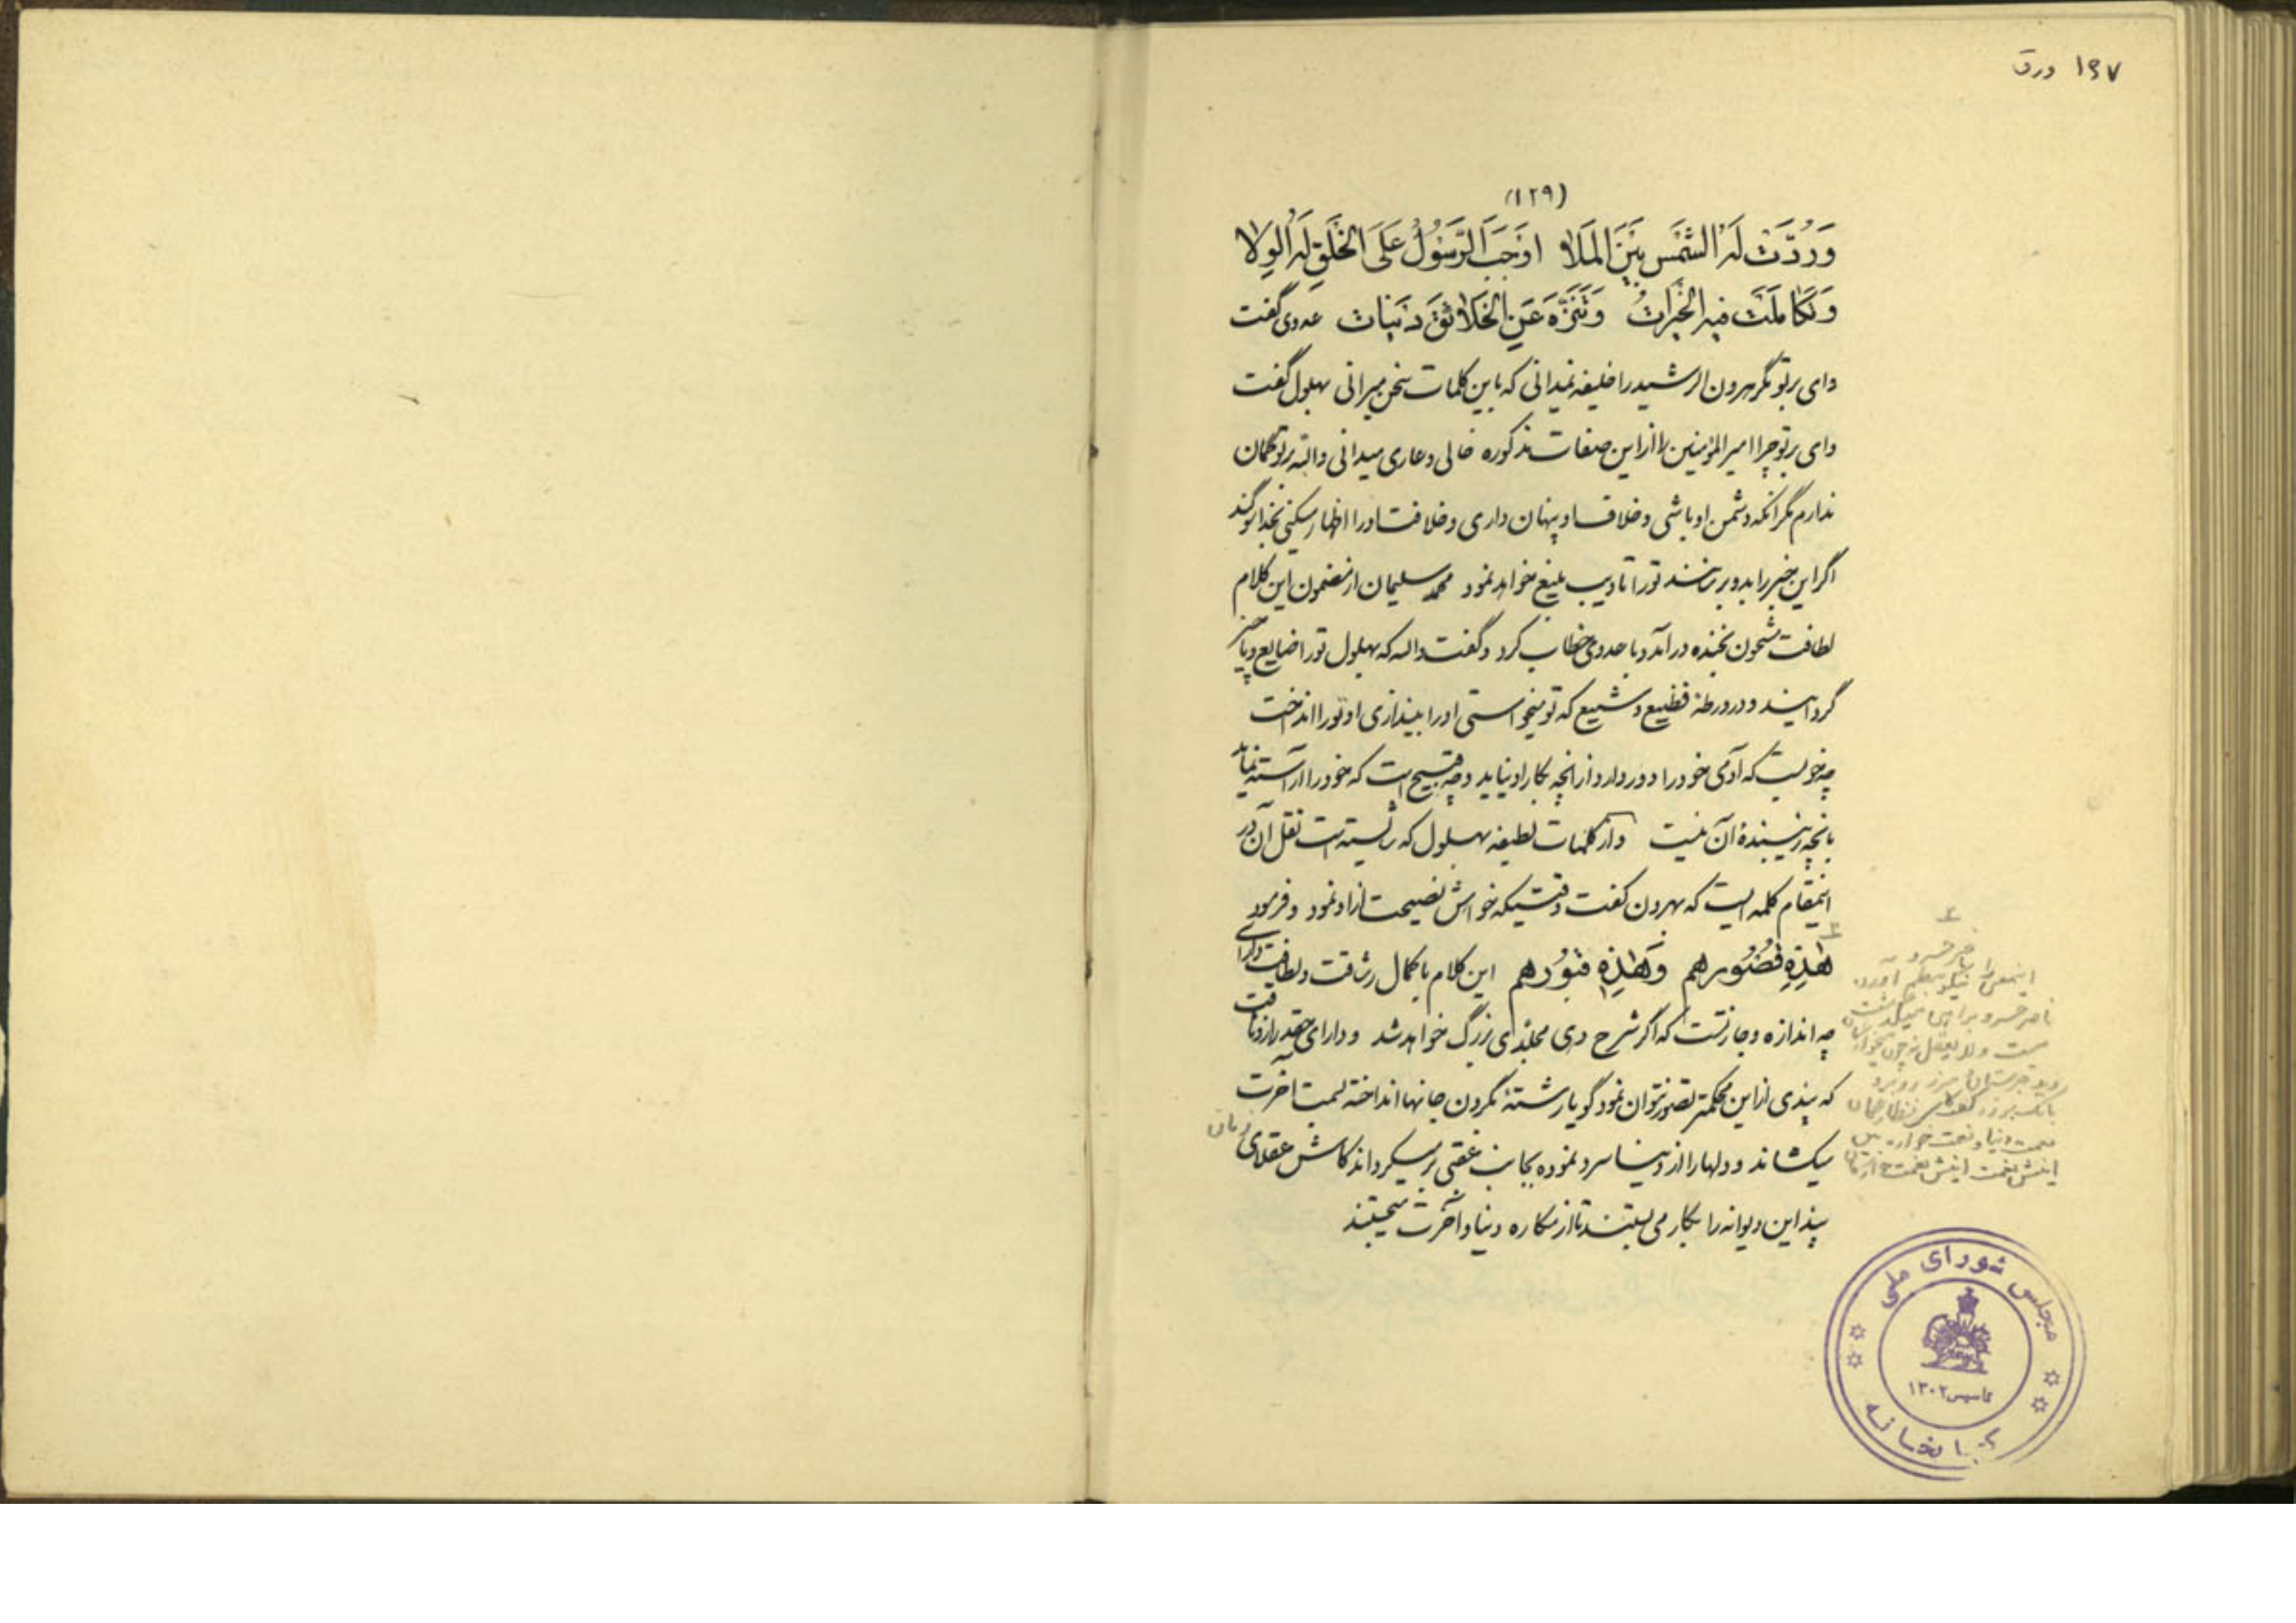 ۱۹۷ ورق
(۱۲۹)
وَرُدَّتْ لَهُ الشَّمْسُ بَیْنَ الْمَلَا اَوْجَبَ الرَّسُولُ عَلَی الْخَلْقِ لَهُ الْوِلَا
وَتَکَامَلَتْ فِیهِ الْخَیْرَاتُ وَتَنَزَّهَ عَنِ الْخَلَائِقِ دَنِیَّاتِ عدوی گفت
وای بر تو مگر هرون الرشید را خلیفه نمیدانی که باین کلمات سخن میرانی بهلول گفت
وای بر تو چرا امیر المؤمنین را از این صفات مذکوره خالی و عاری میدانی والله بر تو گمان
ندارم مگر آنکه دشمن او باشی و خلاف او پنهان داری و خلافت او را اظهار میکنی بخدا سوگند
اگر این خبر را بدو برسانند تو را تادیب بلیغ خواهد نمود محمد سلیمان از مضمون این کلام
لطافت مشحون بخنده در آمد و با عدوی خطاب کرد و گفت والله که بهلول تو را ضایع و ناچیز
گردانید و در ورطهٔ فظیع و شنیع که تو میخواستی او را بیندازی او تو را انداخت
چه خوبست که آدمی خود را دور دارد از آنچه بکار او نیاید و چه قبیح است که خود را آراسته نماید
بانچه زیبندهٔ آن نیست و از کلمات لطیفه بهلول که شایسته است نقل آن در
اینمقام کلمه ایست که بهرون گفت وقتیکه خواهش نصیحت از او نمود و فرمود
هٰذِهِ قُصُورُهم وَهٰذِهِ قُبُورُهم این کلام با کمال رشاقت و لطافت دارای
چه اندازه وجازتست که اگر شرح دهی مجلدی بزرگ خواهد شد و دارای چقدر از وثاقت
که پندی از این محکمتر تصور نتوان نمود گویا رشته بگردن جانها انداخته بسمت آخرت
میکشاند و دلها را از دنیا سرد نموده بجانب عقبی بر میگرداند کاش عقلای زمان
پند این دیوانه را بکار می بستند تا از مکاره دنیا و آخرت میجستند
اینمعنی را ناصر خسرو نیکو بنظم آورده
ناصر خسرو براهی میگذشت
مست و لایعقل نه چون میخوارگان
دید قبرستان و مبرز روبرو
بانگ بر زد گفت کای نظارگان
نعمت دنیا و نعمت خواره بین
اینش نعمت اینش نعمت خوارگان
مجلس شورای ملی
تاسیس ۱۳۰۲
کتابخانه